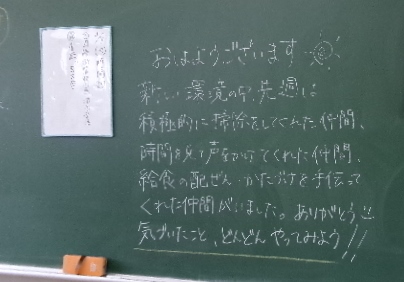 おはようございます
新しい環境の中、先週は
積極的に掃除をしてくれた仲間、
時間を見て声をかけてくれた仲間、
給食の配ぜん・かたづけを手伝って
くれた仲間がいました。ありがとう
気づいたこと、どんどんやってみよう!!